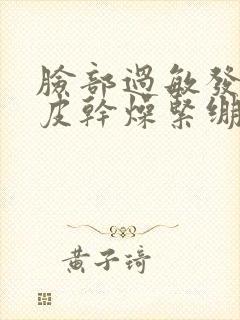 臉部過敏發
皮幹燥緊繃
黃子琦